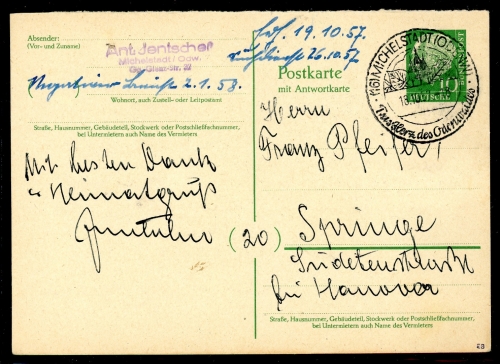 Absender:
(Vor- und Zuname)
Ant. Jentschef
Michelstadt/Odw.
2.1.58.
Wohnort, auch Zustell- oder Leitpostamt
Straße, Hausnummer, Gebäudeteil, Stockwerk oder Postschließfachnummer,
bei Untermietern auch Name des Vermieters
Mit besten Dank
u Heimatgruß
19.10.57.
26.10.57
Postkarte
mit Antwortkarte
(16) MICHELSTADT (ODENW)
10
DEUTSCHE
Das Herz des Odenwaldes
Herrn
Franz Pfeifer
(20) Springe
Sudetenstraße
bei Hanover
Straße, Hausnummer, Gebäudeteil, Stockwerk oder Postschließfachnummer,
bei Untermietern auch Name des Vermieters